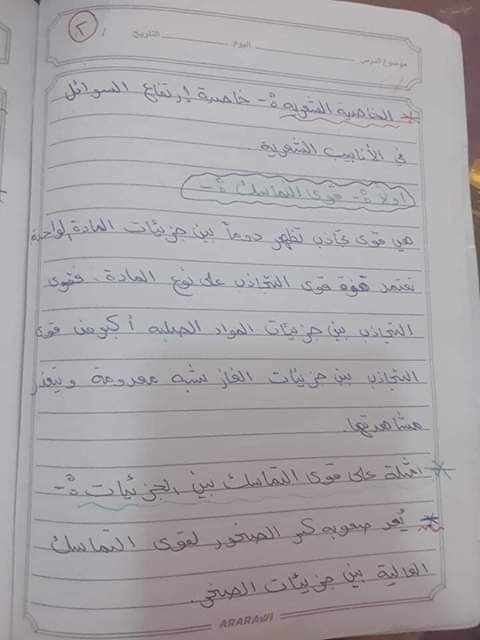 ٢
موضوع الدرس اليوم التاريخ
* الخاصية الشعرية :- خاصية إرتفاع السوائل
في الأنابيب الشعرية.
اولاً :- قوى التماسك :-
هي قوى تجاذب تظهر دوماً بين جزيئات المادة الواحدة
تعتمد قوة قوى التجاذب على نوع المادة. فقوى
التجاذب بين جزيئات المواد الصلبه أكبر من قوى
التجاذب بين جزيئات الغاز شبه معدومة ويتعذر
مشاهدتها.
* امثلة على قوى التماسك بين الجزيئات :-
* يُعد صعوبه كسر الصخور لقوى التماسك
العالية بين جزيئات الصخر.
ARARAWI